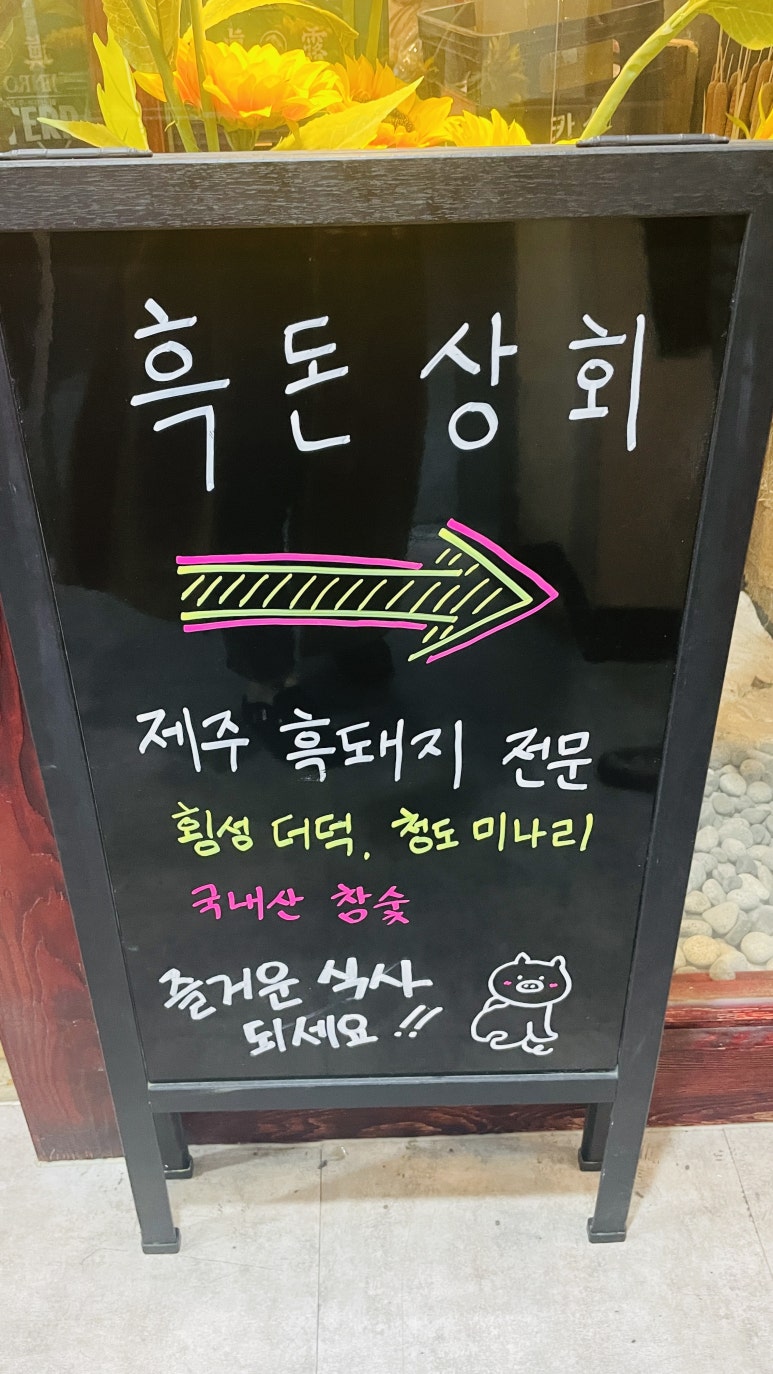 흑돈상회
제주 흑돼지 전문
횡성 더덕, 청도 미나리
국내산 참숯
즐거운 식사
되세요!!